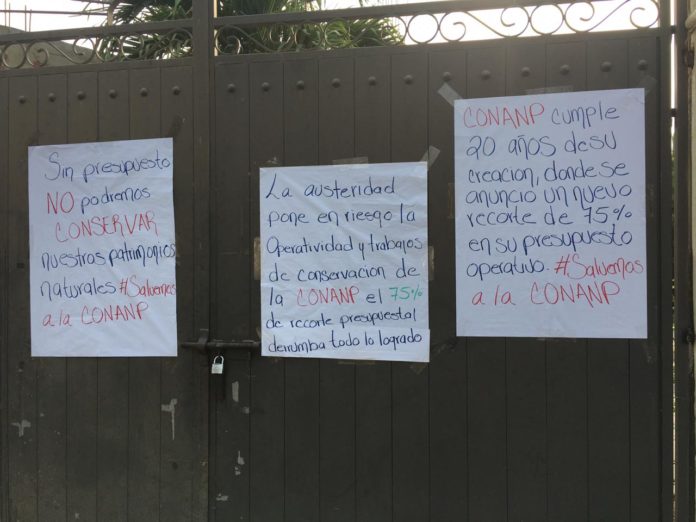 Sin presupuesto
NO podremos
CONSERVAR
nuestros patrimonios
naturales #Salvemos
a la CONANP
La austeridad
pone en riesgo la
Operatividad y trabajos
de conservación de
la CONANP el 75%
de recorte presupuestal
derrumba todo lo logrado
CONANP cumple
20 años de su
creación, donde se
anuncio un nuevo
recorte de 75%
en su presupuesto
operativo. #Salvemos
a la CONANP